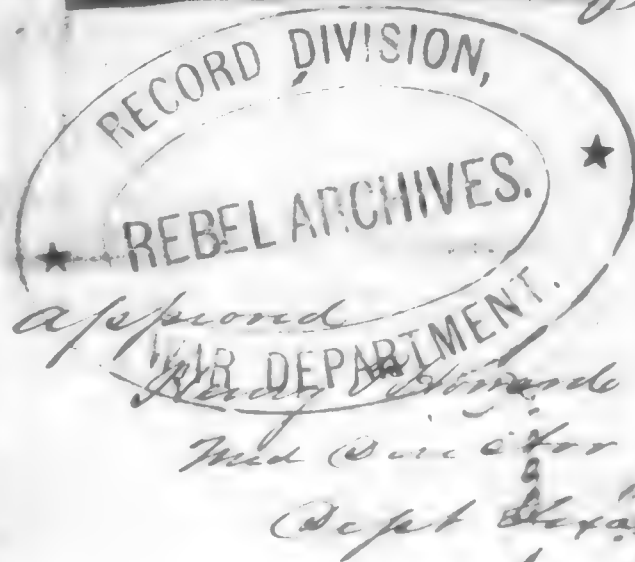 RECORD DIVISION,
REBEL ARCHIVES.
WAR DEPARTMENT.
approved
Med Director
Dept Texa